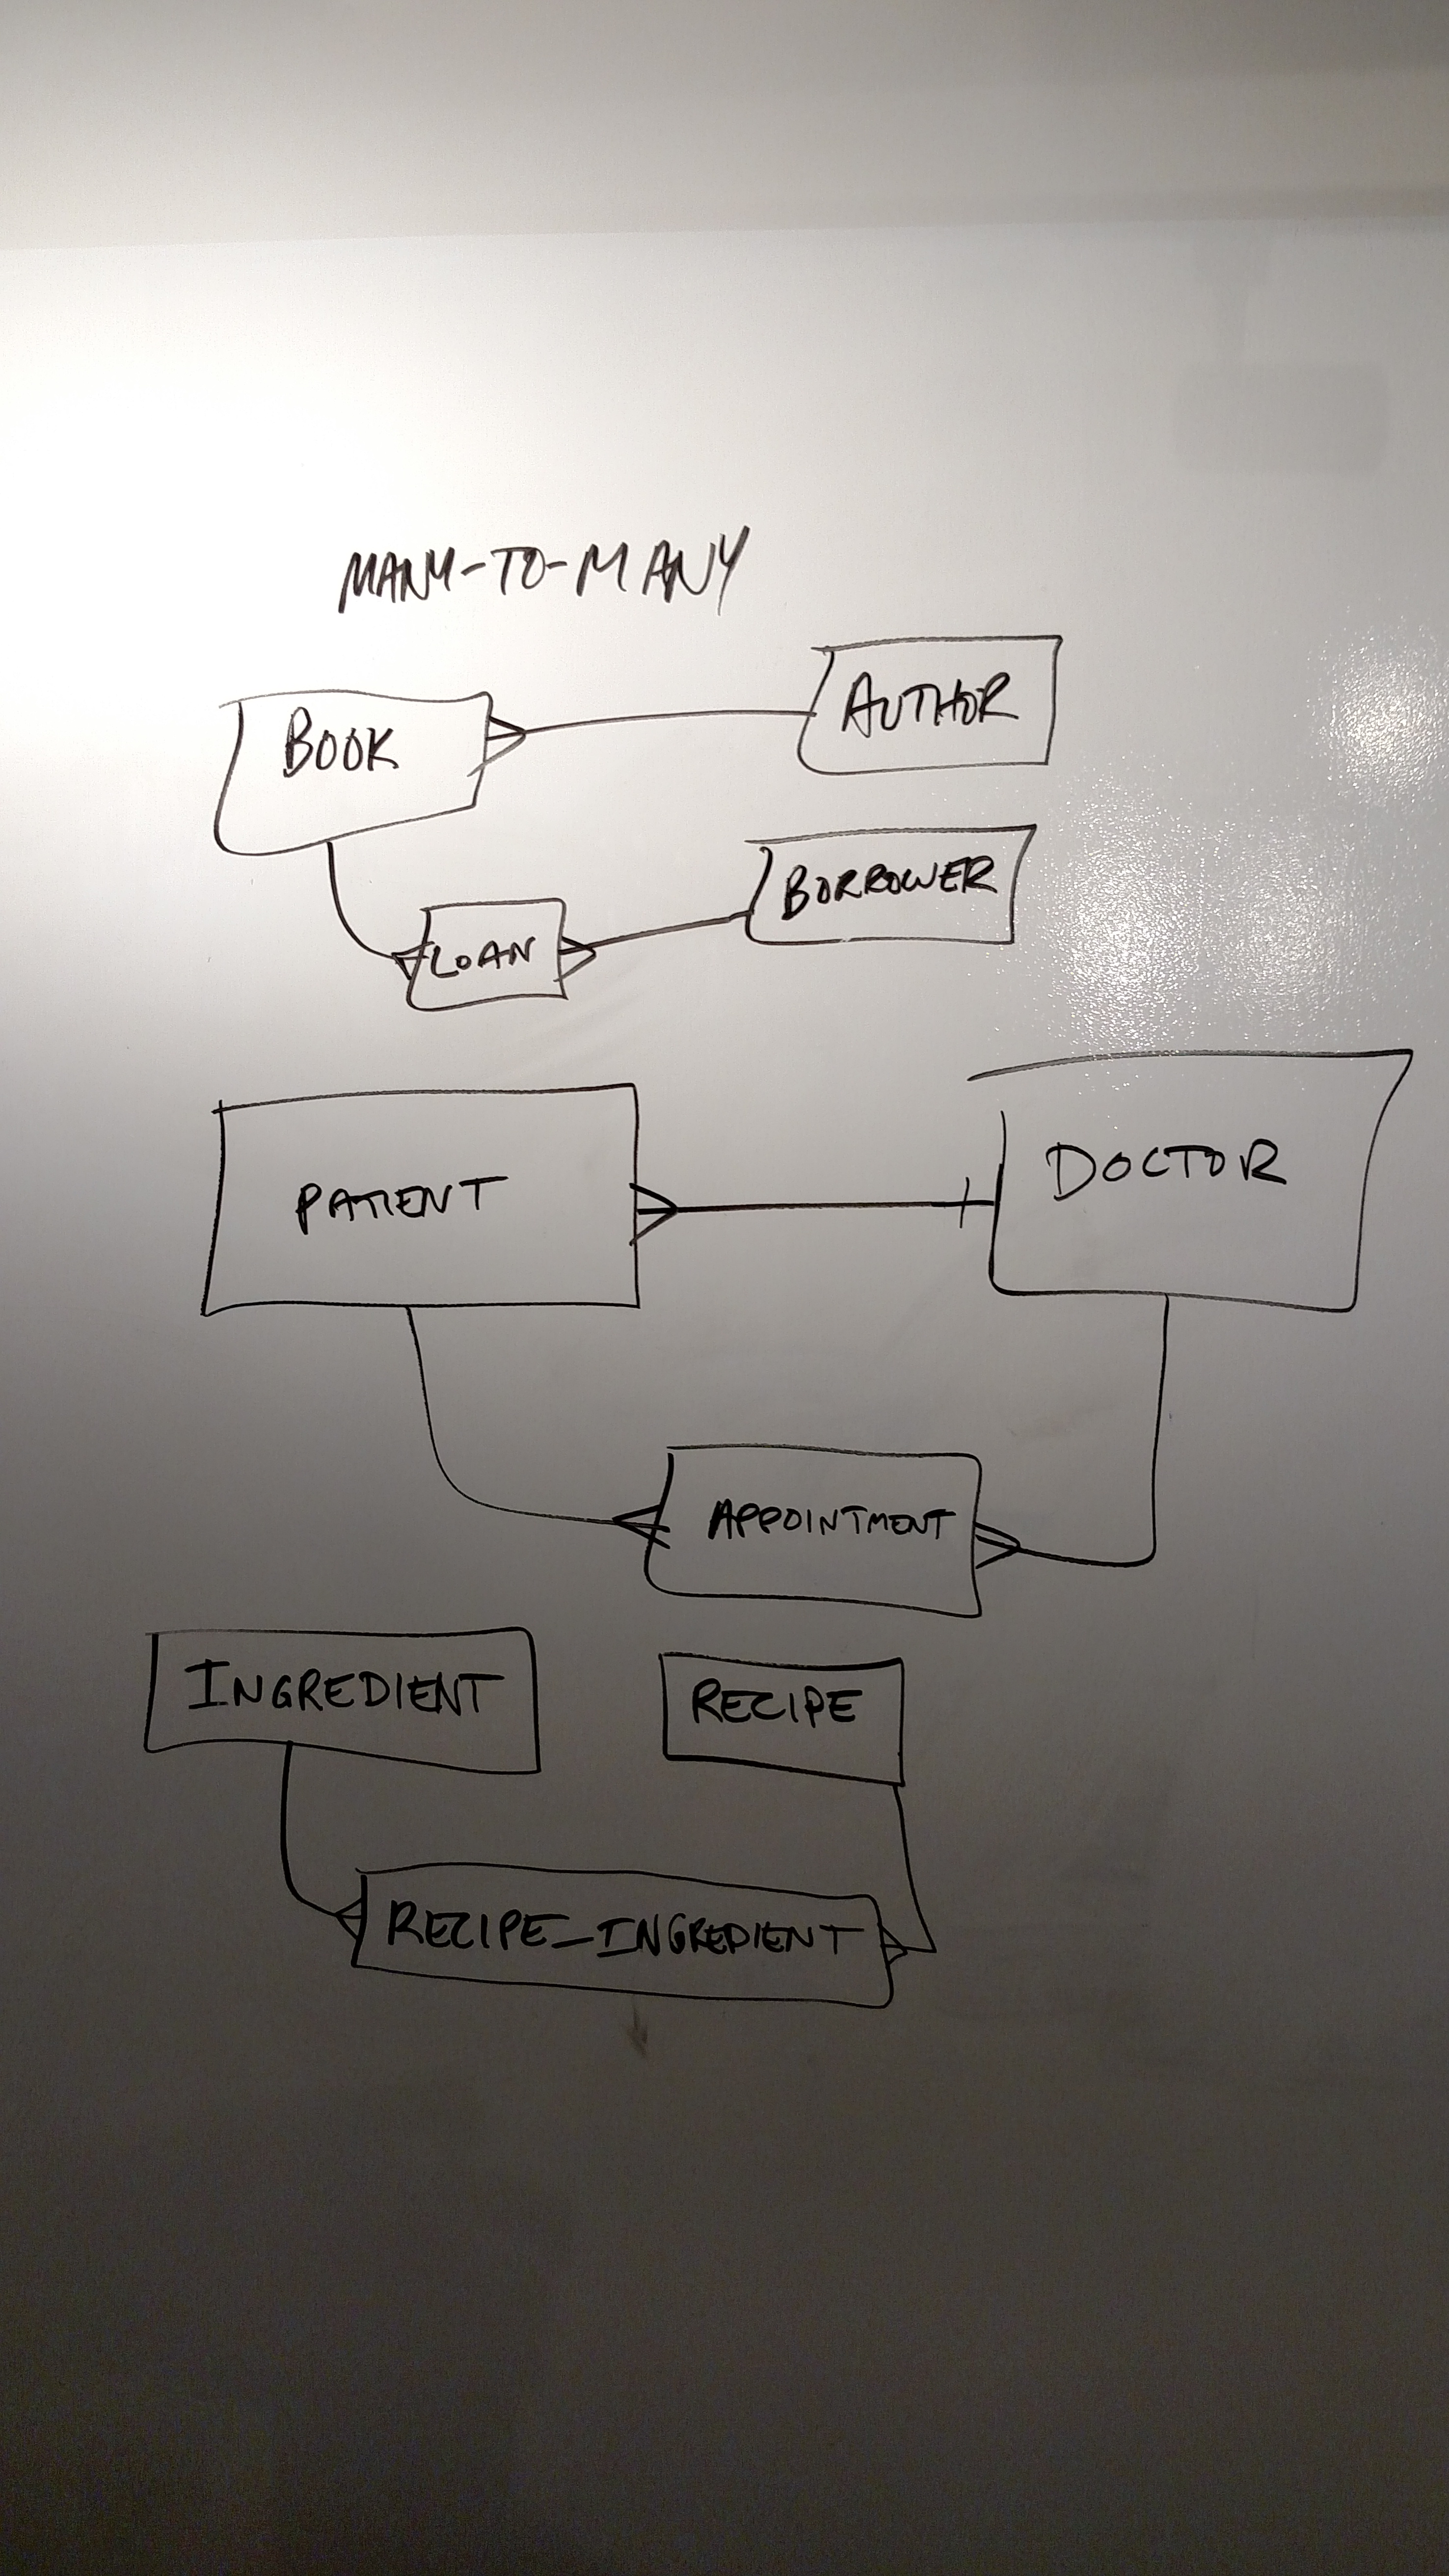 MANY-TO-MANY
BOOK
AUTHOR
BORROWER
LOAN
PATIENT
DOCTOR
APPOINTMENT
INGREDIENT
RECIPE
RECIPE_INGREDIENT